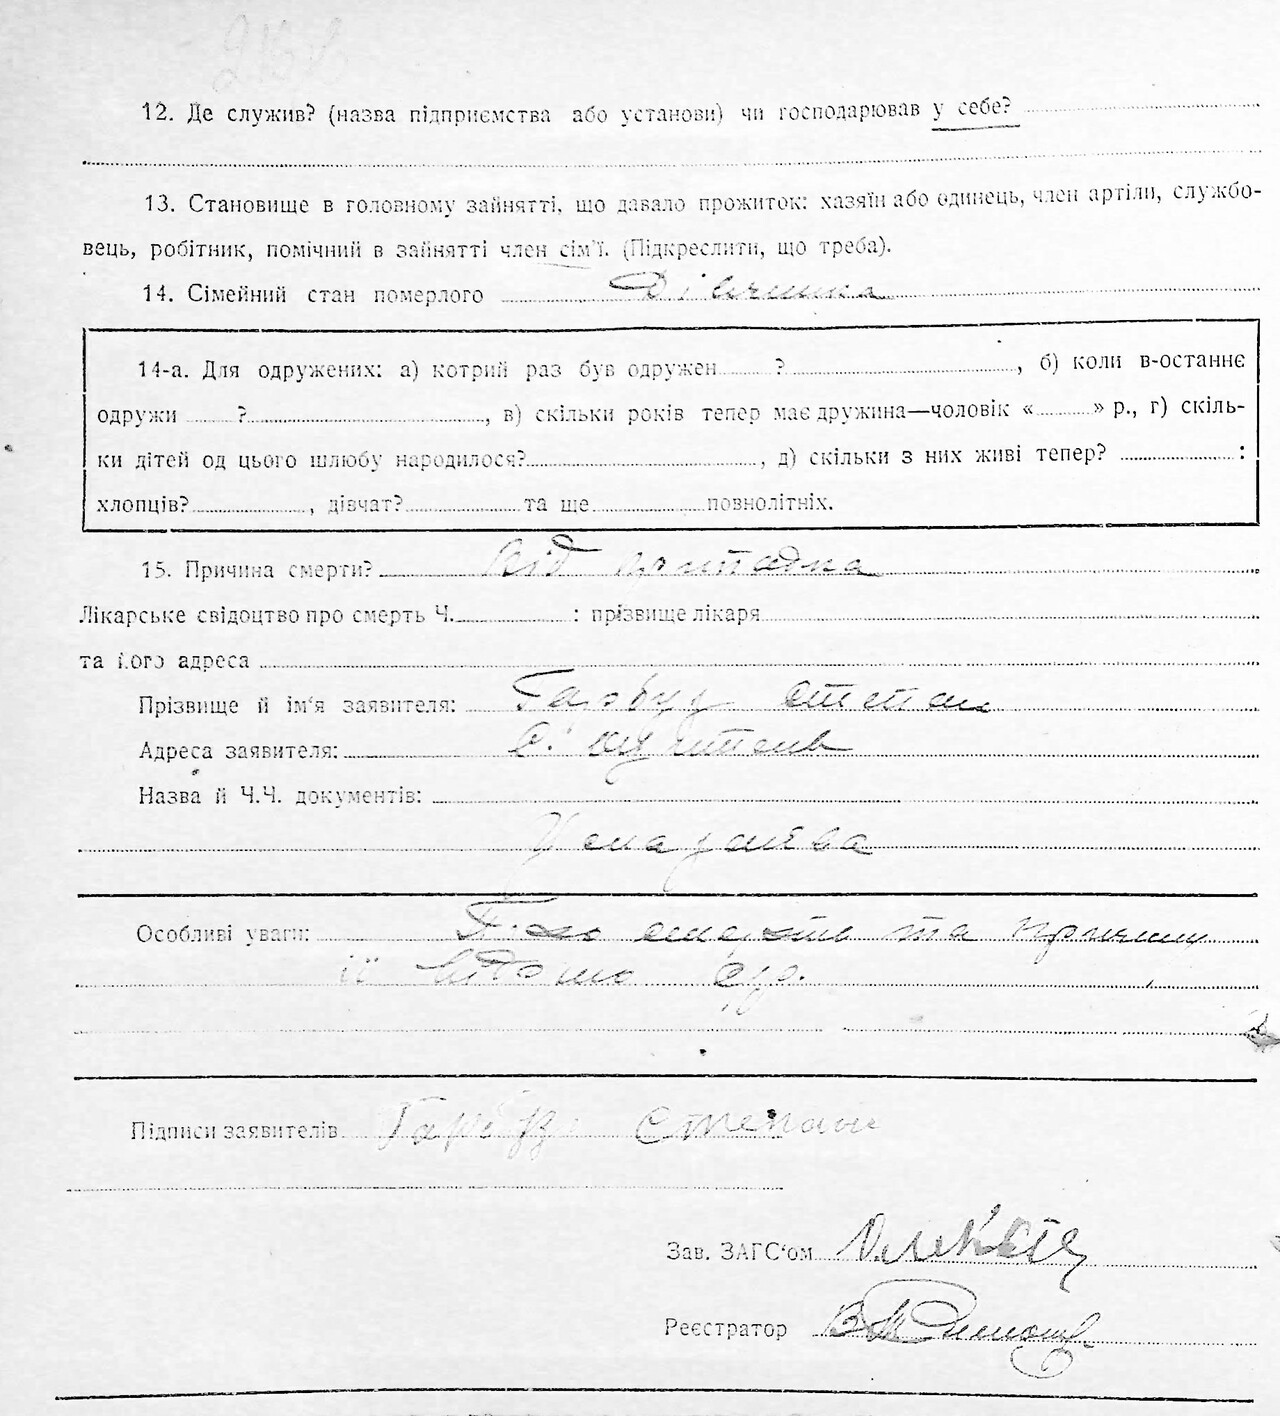 12. Де служив? (назва підприємства або установи) чи господарював у себе?
13. Становище в головному зайнятті, що давало прожиток: хазяїн або одинець, член артіли, службо-
вець, робітник, помічний в зайнятті член сім'ї. (Підкреслити, що треба).
14. Сімейний стан померлого Дівчинка
14-а. Для одружених: а) котрий раз був одружен ? , б) коли в-останнє
одружи ? , в) скільки років тепер має дружина—чоловік « » р., г) скіль-
ки дітей од цього шлюбу народилося? , д) скільки з них живі тепер? :
хлопців? , дівчат? та ще повнолітніх.
15. Причина смерти? Від
Лікарське свідоцтво про смерть Ч. : прізвище лікаря
та його адреса
Прізвище й ім'я заявителя: Гарбуз Степан
Адреса заявителя: с.
Назва й Ч.Ч. документів:
Особливі уваги: смерть та причину
її відомо
Підписи заявителів Гарбуз Степан
Зав. ЗАГС'ом
Реєстратор